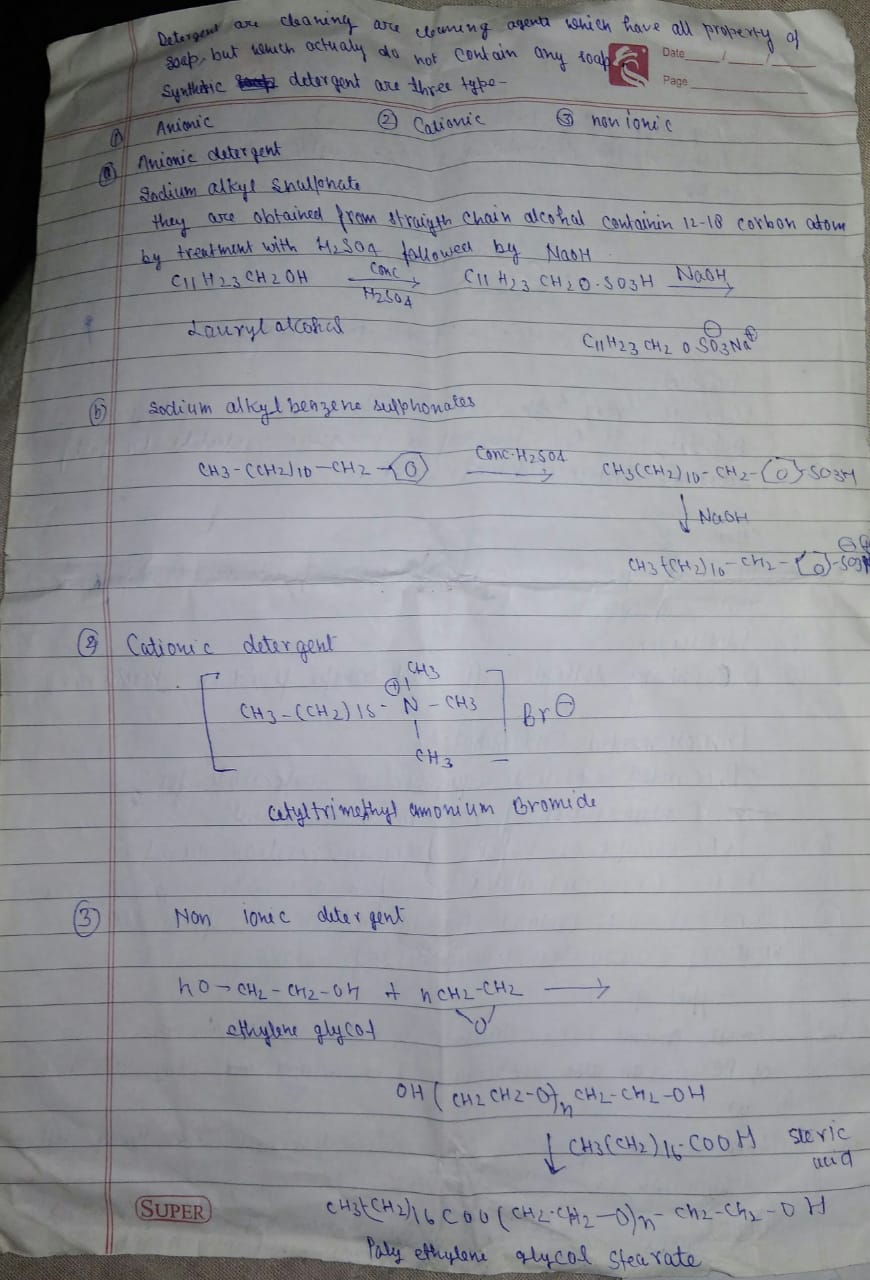 Detergent are cleaning are cleaning agents which have all property of
soap, but which actualy do not contain any soap
Date / /
Page
Synthetic detergent are three type-
① Anionic ② Cationic ③ non ionic
ⓐ Anionic detergent
Sodium alkyl Shulphonate
they are obtained from straigth chain alcohal containin 12-18 corbon atom
by treatment with H2SO4 followed by NaOH
C11H23CH2OH conc H2SO4 → C11H23CH2O·SO3H NaOH →
Lauryl alcohal
C11H23CH2 O SO3⊖Na⊕
ⓑ Sodium alkyl benzene sulphonates
CH3-(CH2)10-CH2- Conc·H2SO4 → CH3(CH2)10-CH2- -SO3H
↓ NaOH
CH3(CH2)10-CH2- -SO3⊖
② Cationic detergent
CH3
[CH3-(CH2)15-N⊕-CH3] Br⊖
CH3
Cetyltrimethyl amonium Bromide
③ Non ionic detergent
HO-CH2-CH2-OH + nCH2-CH2 →
ethylene glycol O
OH(CH2CH2-O)n CH2-CH2-OH
↓ CH3(CH2)16-COOH steric
acid
CH3(CH2)16COO(CH2-CH2-O)n-CH2-CH2-OH
Poly ethylene glycol stearate
SUPER